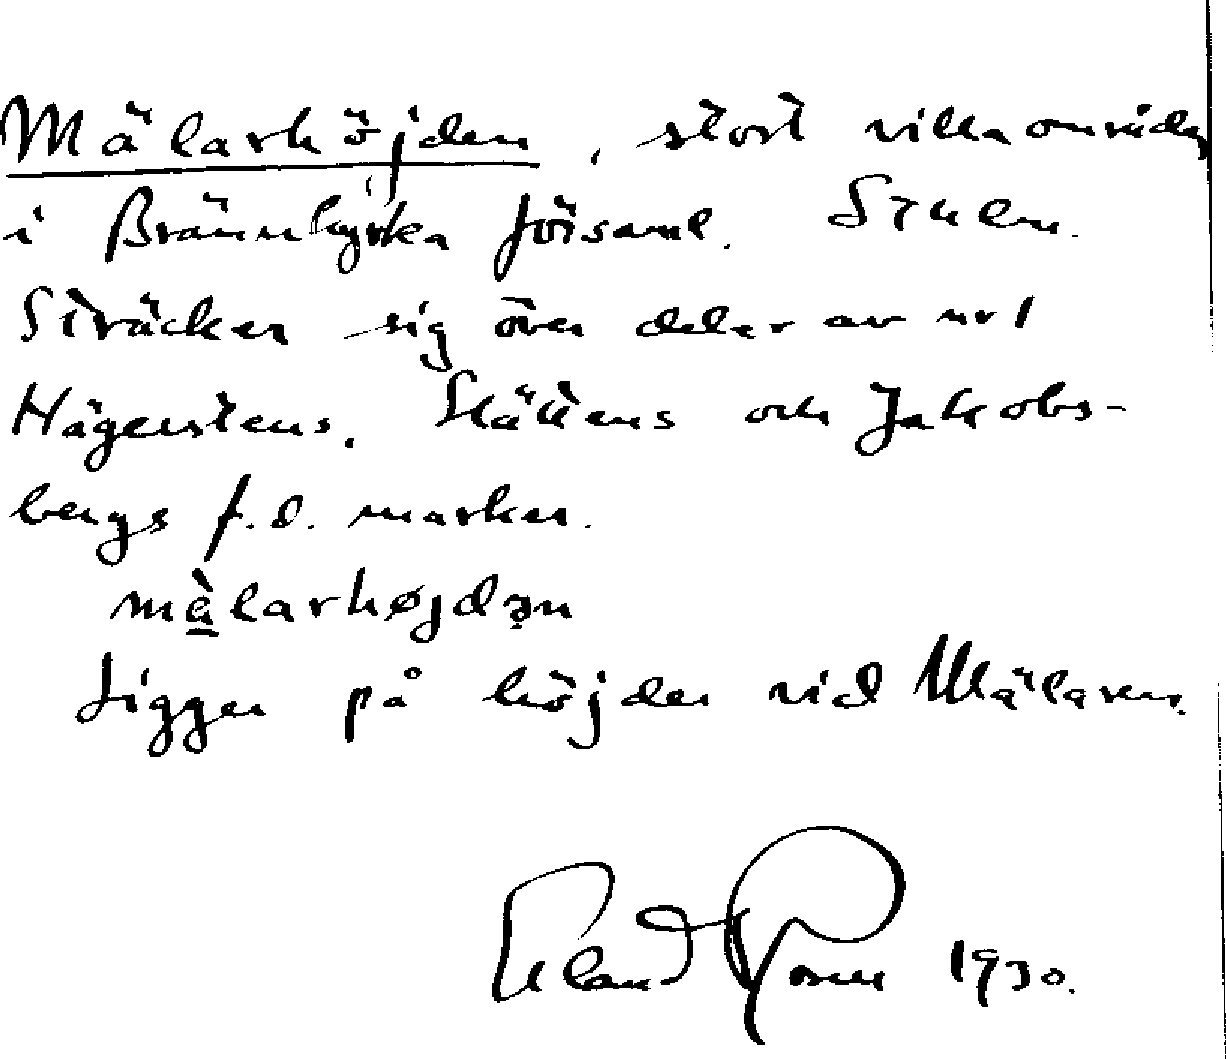 Mälarhöjden, stort villaområde
i Brännkyrka förs:aml. Sthlm.
Sträcker sig över delar av
Hägerstens, Slättens och Jakobs-
bergs f.d. marker.
mä̀larhøjdən
Ligger på höjder vid Mälaren.
1930.